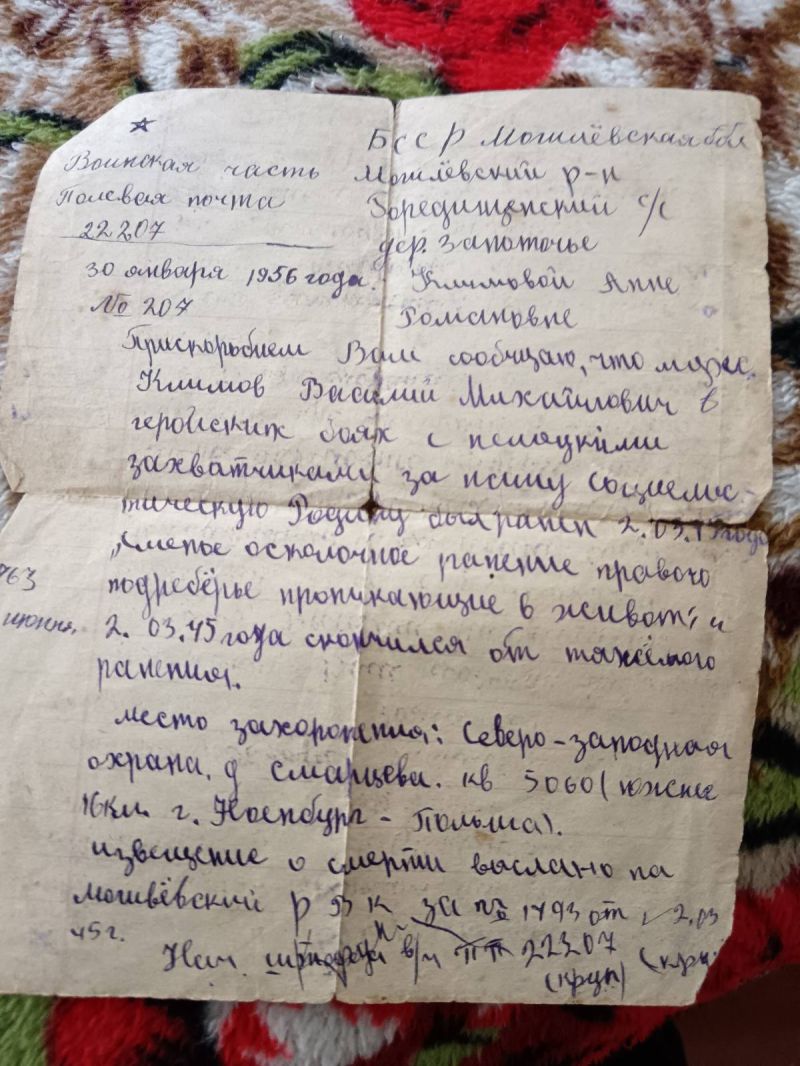 Воинская часть
Полевая почта
22207
30 января 1956 года.
№ 207
БССР Могилёвская обл
Могилёвский р-н
с/с
дер. Запоточье
Климовой Анне
Романовне
Прискорбием Вам сообщаю, что муж
Климов Василий Михайлович в
геройских боях с немецкими
захватчиками за нашу социалис-
тическую Родину был ранен 2.03.45 года
„Слепое осколочное ранение правого
подреберье проникающие в живот" и
2.03.45 года скончился от тяжёлого
ранения.
место захоронения: Северо-западная
охрана, д Смарцева. кв 5060 (южнее
16 км. г. Ноенбург - Польша).
извещение о смерти выслано на
РВК за № 1793 от 2.03
45 г.
Нач. в/ч ПП 22207
(круп)
763
июння,